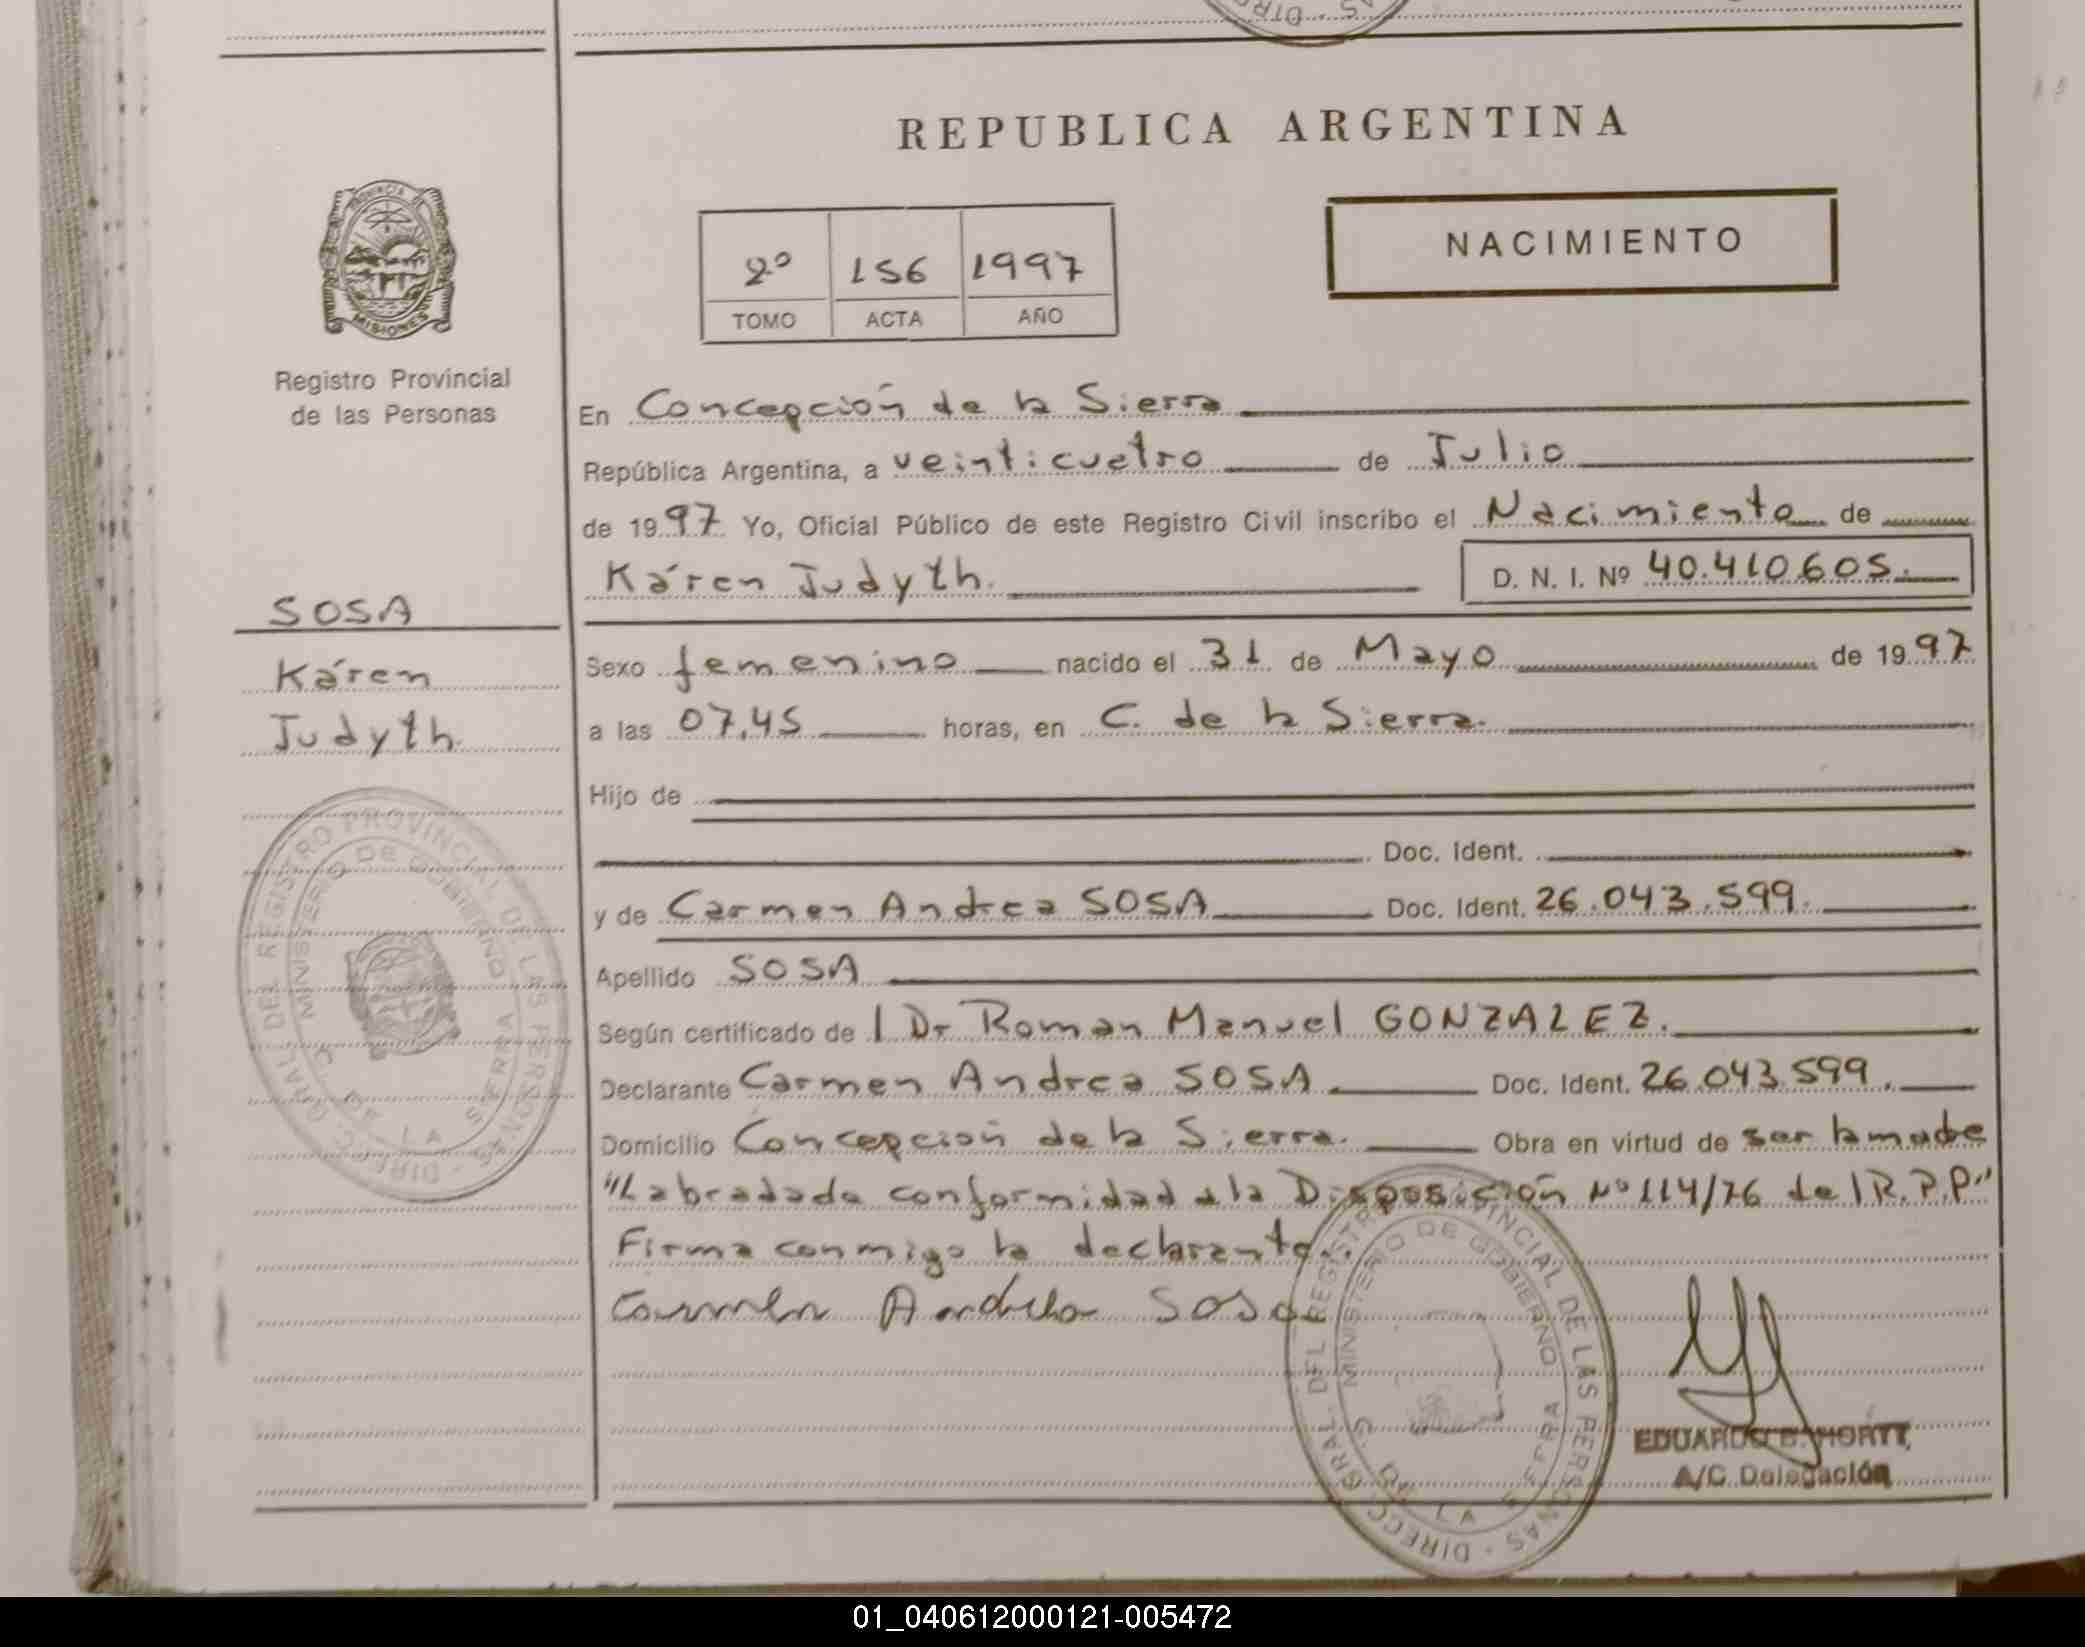 REPUBLICA ARGENTINA
NACIMIENTO
2º 156 1997
TOMO ACTA AÑO
PROVINCIA DE
MISIONES
Registro Provincial
de las Personas
En Concepción de la Sierra
República Argentina, a veinticuatro de Julio
de 1997 Yo, Oficial Público de este Registro Civil inscribo el Nacimiento de
Káren Judyth. D. N. I. Nº 40.410.605.
SOSA
Káren
Judyth.
Sexo femenino nacido el 31 de Mayo de 1997
a las 07,45 horas, en C. de la Sierra.
Hijo de
Doc. Ident.
y de Carmen Andrea SOSA Doc. Ident. 26.043.599.
Apellido SOSA
Según certificado del Dr Roman Manuel GONZALEZ.
Declarante Carmen Andrea SOSA. Doc. Ident. 26.043.599.
Domicilio Concepción de la Sierra. Obra en virtud de ser la madre
"Labradada conformidad a la Disposición Nº 114/76 del R.P.P."
Firma conmigo la declarante.
Carmen Andrea Sosa
DIRECC. GRAL. DEL REGISTRO PROVINCIAL DE LAS PERSONAS
MINISTERIO DE GOBIERNO
C. DE LA SIERRA
DIRECC. GRAL. DEL REGISTRO PROVINCIAL DE LAS PERSONAS
MINISTERIO DE GOBIERNO
C. DE LA SIERRA
EDUARDO B. HORTT,
A/C Delegación
01_040612000121-005472